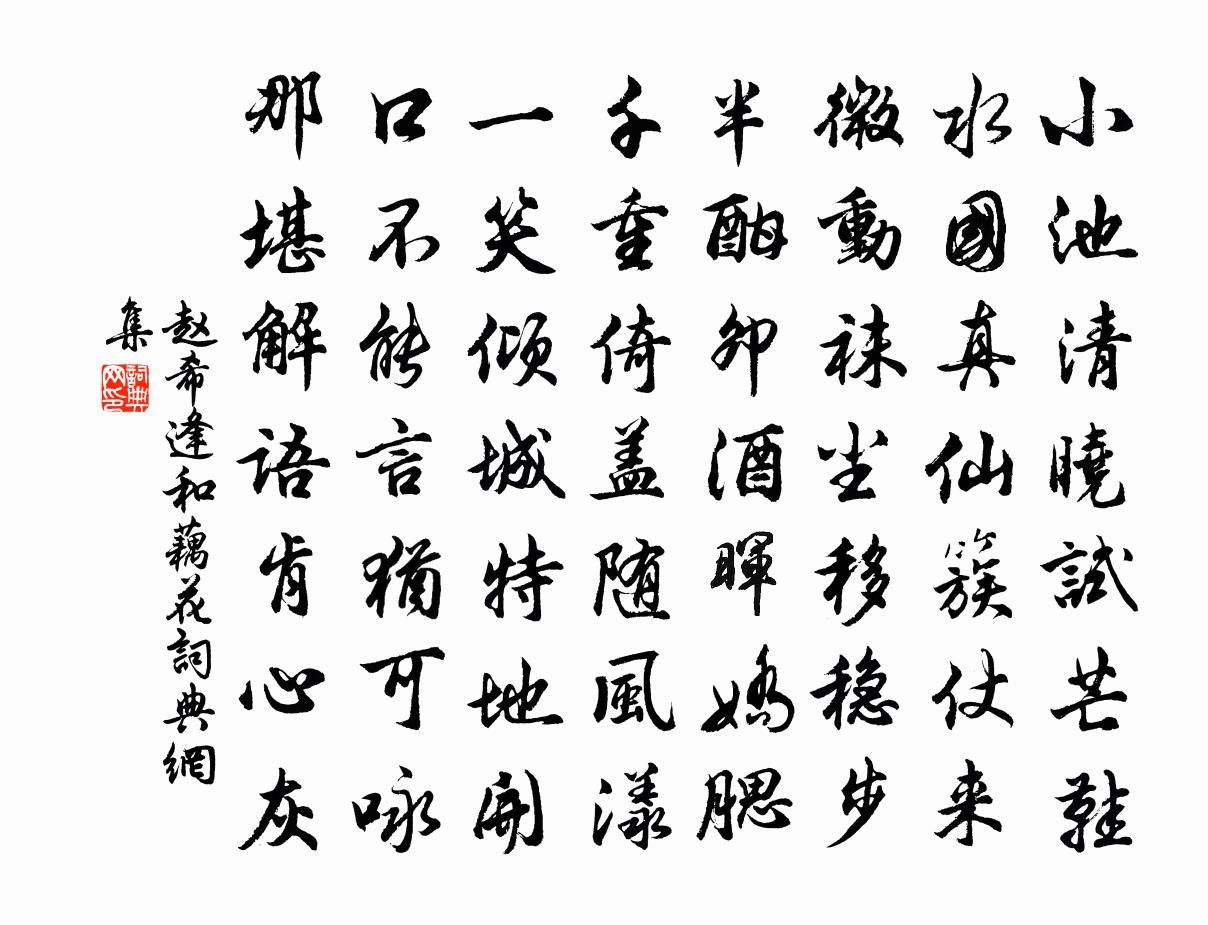 小池清曉試芒鞋
水國真仙簇仗来
微動袜尘移穏步
半酣卯酒暈嬌腮
千重倚盖随風漾
一笑傾城特地開
口不能言猶可咏
那堪解語肯心灰
赵希逢和藕花詞典網
集
詞典
网印